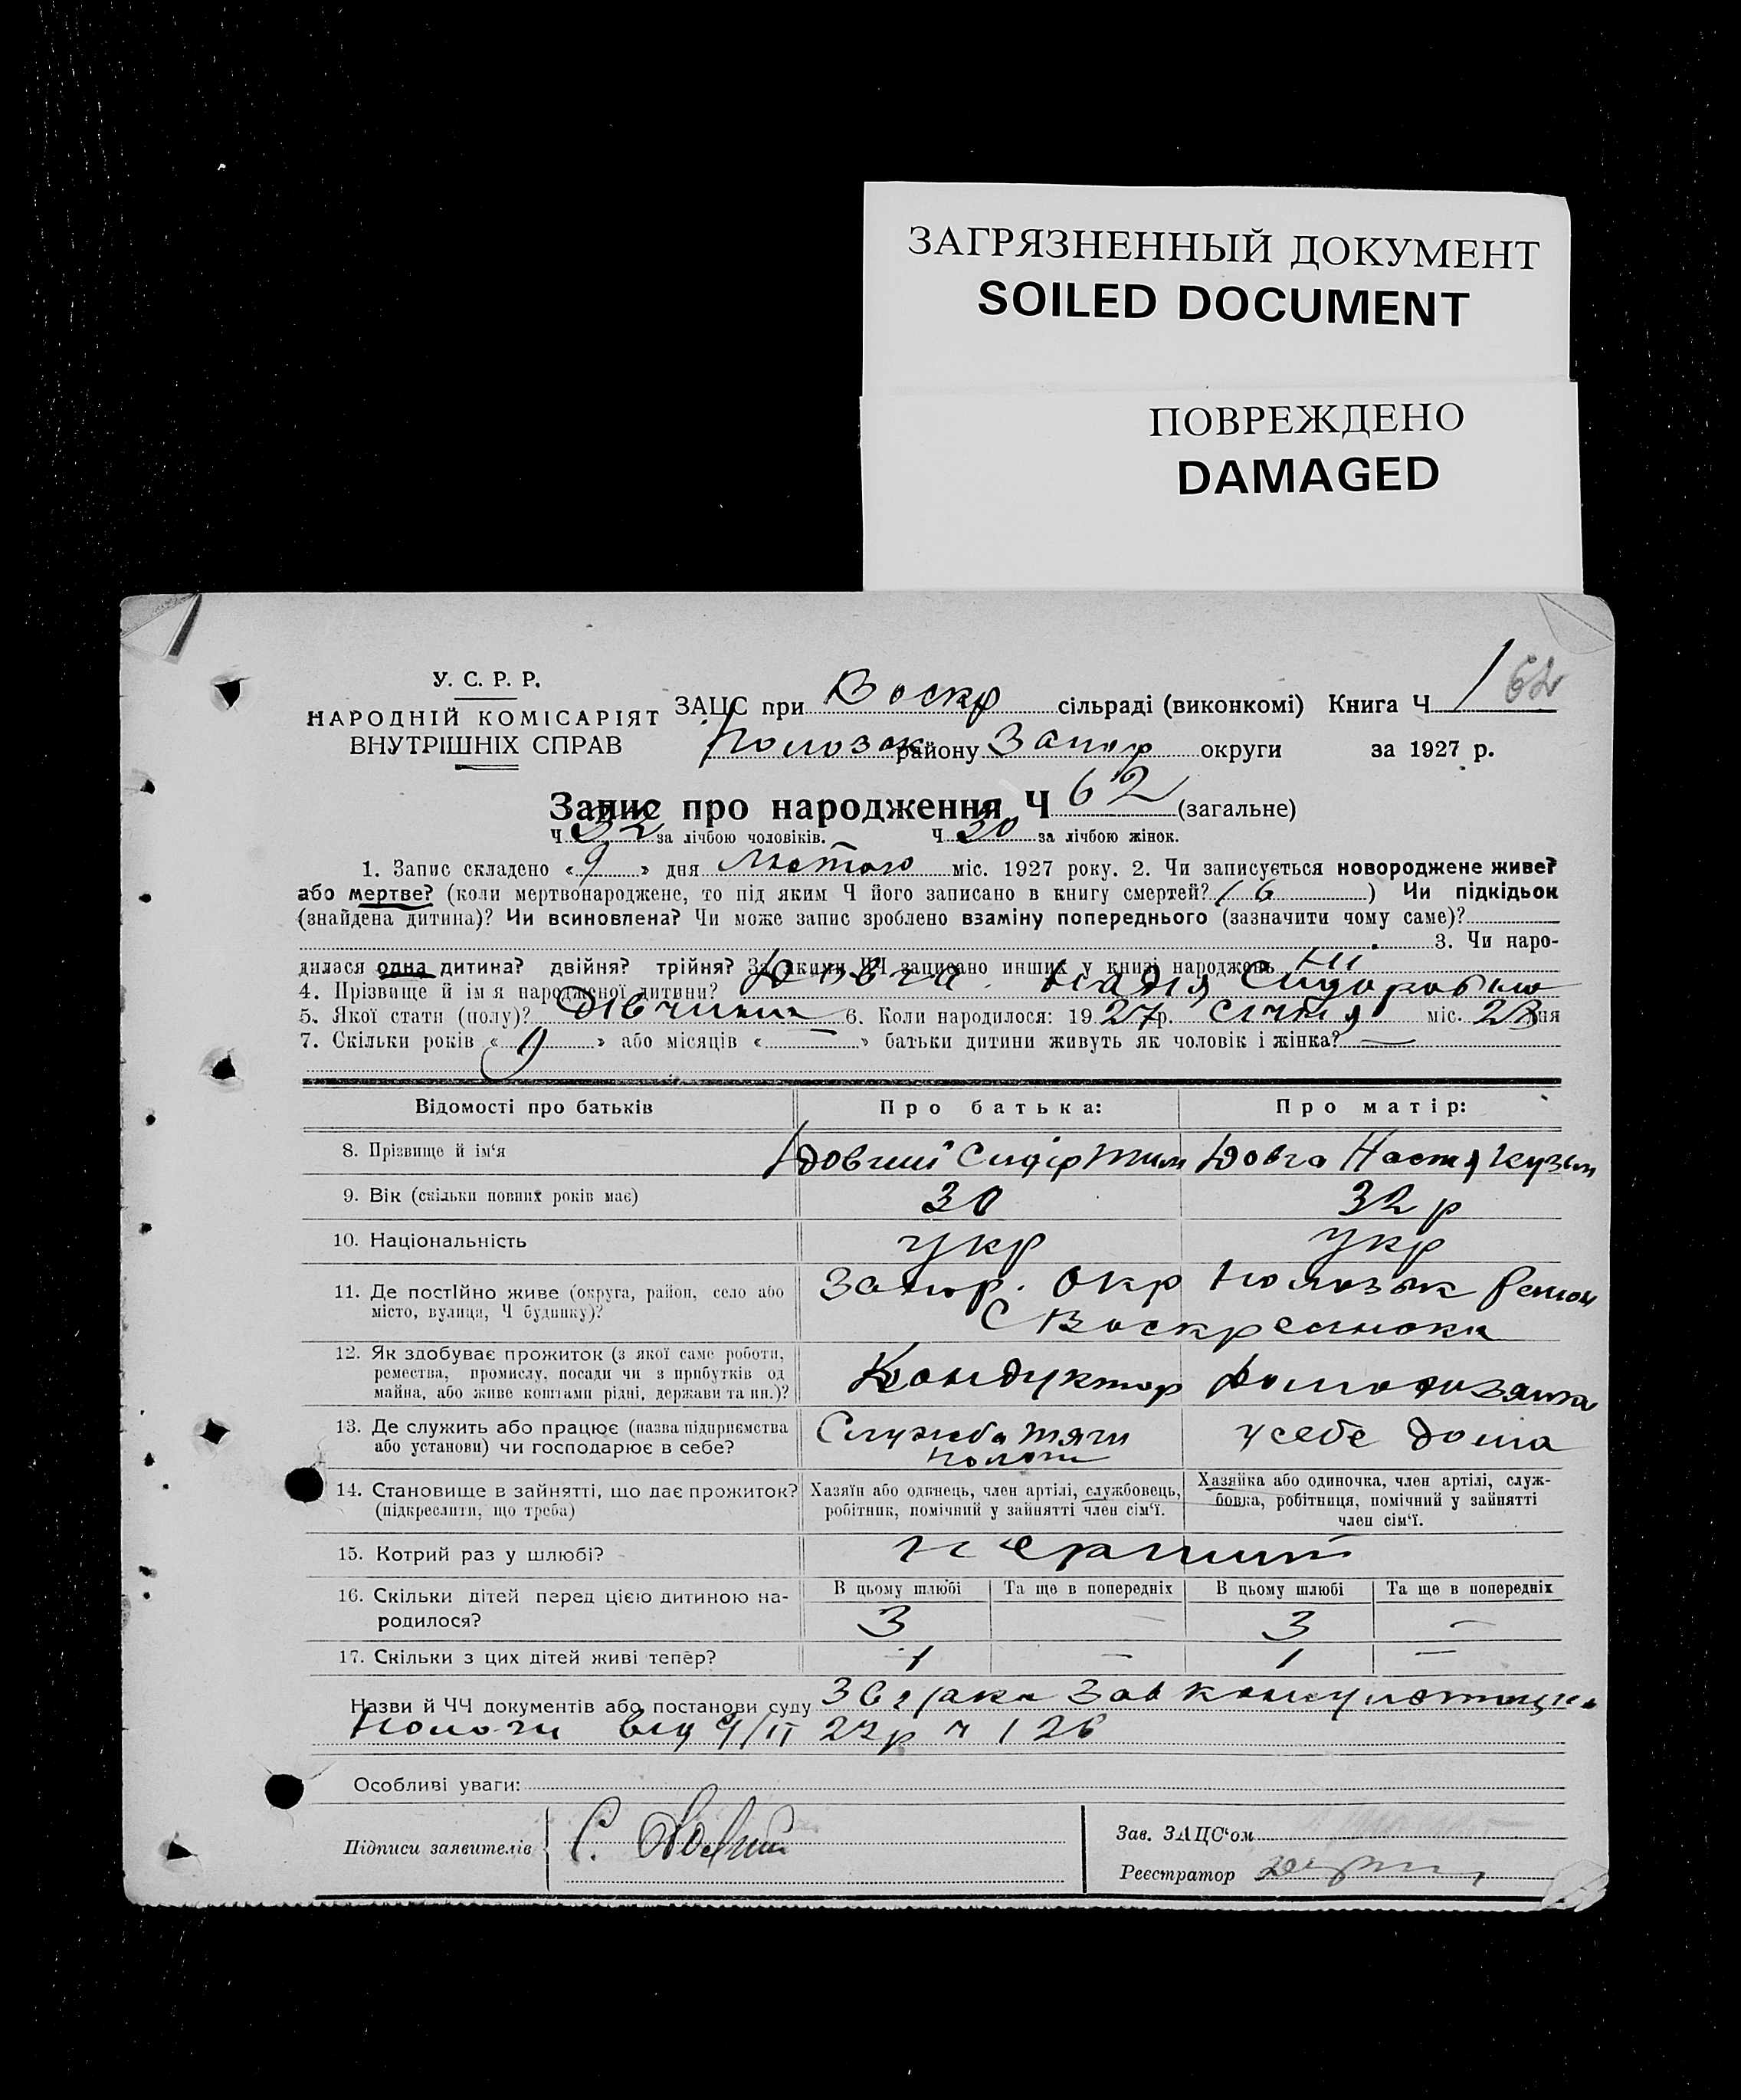 ЗАГРЯЗНЕННЫЙ ДОКУМЕНТ
SOILED DOCUMENT
ПОВРЕЖДЕНО
DAMAGED
У. С. Р. Р.
НАРОДНІЙ КОМІСАРІЯТ
ВНУТРІШНІХ СПРАВ
ЗАЦС при Воскр сільраді (виконкомі) Книга Ч 1 62
району Запор округи за 1927 р.
Запис про народження Ч 62 (загальне)
Ч 32 за лічбою чоловіків. Ч 30 за лічбою жінок.
1. Запис складено « 9 » дня Лютого міс. 1927 року. 2. Чи записується новороджене живе?
або мертве? (коли мертвонароджене, то під яким Ч його записано в книгу смертей? 16 ) Чи підкідьок
(знайдена дитина)? Чи всиновлена? Чи може запис зроблено взаміну попереднього (зазначити чому саме)?
3. Чи наро-
дилася одна дитина? двійня? трійня? За якими ЧЧ записано инших у книзі народжень Ні
4. Прізвище й імя народженої дитини? Довга Надія Сидоровна
5. Якої стати (полу)? Дівчина 6. Коли народилося: 1927 р. Січня міс. 28 дня
7. Скільки років « 9 » або місяців « — » батьки дитини живуть як чоловік і жінка? —
Відомості про батьків
Про батька:
Про матір:
8. Прізвище й ім‘я
Довгий Сидір Тим
Довга Настя Кузьм
9. Вік (скільки повних років має)
30
32 р
10. Національність
укр
укр
11. Де постійно живе (округа, район, село або
місто, вулиця, Ч будинку)?
Запор. Окр
С Воскресенока
12. Як здобуває прожиток (з якої саме роботи,
ремества, промислу, посади чи з прибутків од
майна, або живе коштами рідні, держави та ин.)?
Кондуктор
Домохозяика
13. Де служить або працює (назва підприємства
або установи) чи господарює в себе?
Служба тяги
Пологи
у себе дома
14. Становище в зайнятті, що дає прожиток?
(підкреслити, що треба)
Хазяїн або одинець, член артілі, службовець,
робітник, помічний у зайнятті член сім‘ї.
Хазяйка або одиночка, член артілі, служ-
бовка, робітниця, помічний у зайнятті
член сім‘ї.
15. Котрий раз у шлюбі?
Перший
16. Скільки дітей перед цією дитиною на-
родилося?
В цьому шлюбі
Та ще в попередніх
В цьому шлюбі
Та ще в попередніх
3 — 3 —
17. Скільки з цих дітей живі тепер?
1 — 1 —
Назви й ЧЧ документів або постанови суду
Пологи від 9/II 27р ч 126
Особливі уваги:
Підписи заявителів
С. Довгий
Зав. ЗАЦС‘ом
Реєстратор